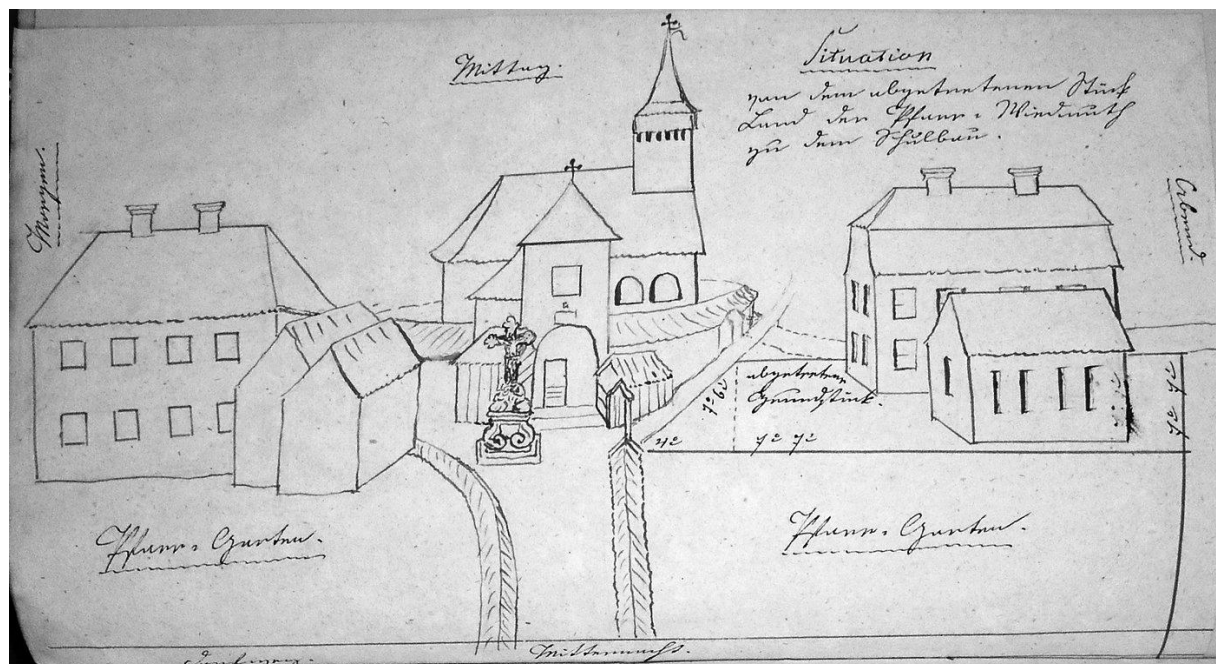 Mittag.
Situation
von dem abgetretenen Stück
Land der Pfarr-Wiedmuth
zu dem Schulbau.
Morgen.
Abend.
abgetretene
Grundstück.
Pfarr-Garten.
Pfarr-Garten.
Mitternacht.